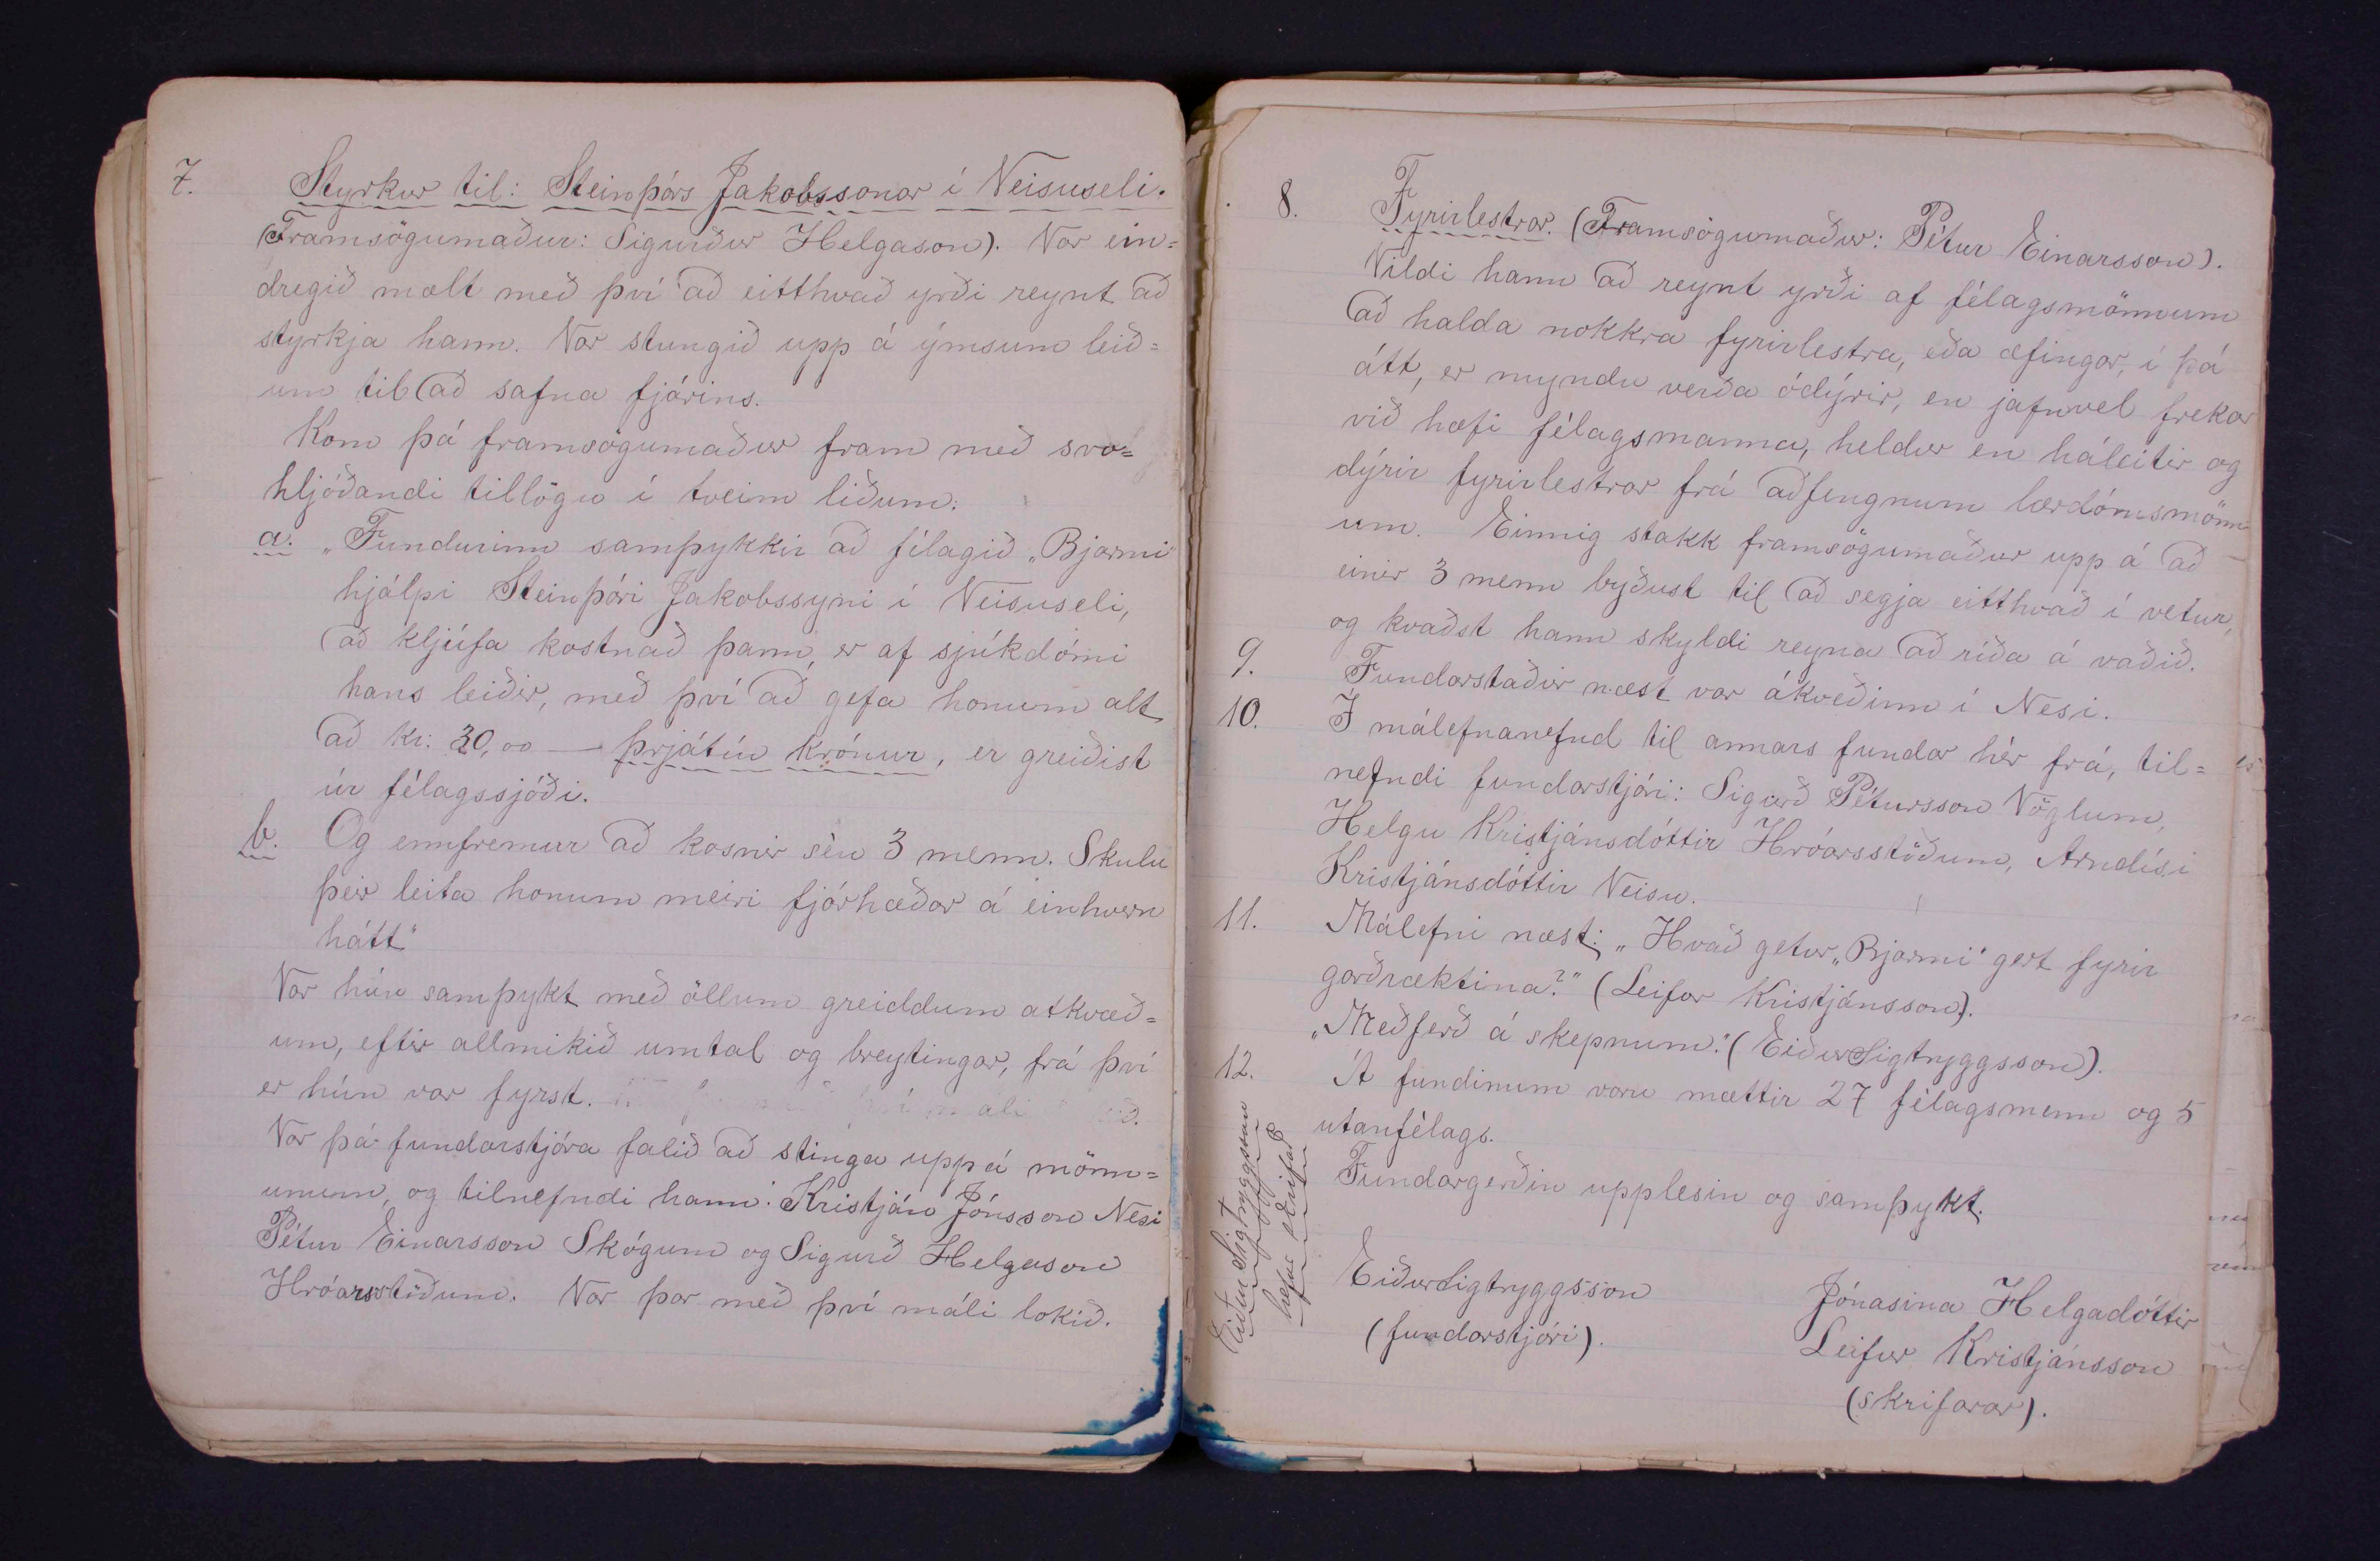 7. Styrkur til: Steinþórs Jakobssonar í Veisuseli.
(Framsögumaður: Sigurður Helgason). Var ein=
dregið mælt með því að eitthvað yrði reynt að
styrkja hann. Var stungið upp á ýmsum leið=
um til að safna fjárins.
Kom þá framsögumaður fram með svo=
hljóðandi tillögu í tveim liðum:
a. „Fundurinn samþykkir að félagið „Bjarmi"
hjálpi Steinþóri Jakobssyni í Veisuseli,
að kljúfa kostnað þann, er af sjúkdómi
hans leiðir, með því að gefa honum alt
að kr. 30,00 — þrjátíu krónur, er greiðist
úr félagssjóði.
b. Og ennfremur að kosnir séu 3 menn. Skulu
þeir leita honum meiri fjárhæðar á einhvern
hátt"
Var hún samþykt með öllum greiddum atkvæð=
um, eftir allmikið umtal og breytingar, frá því
er hún var fyrst.
Var þá fundarstjóra falið að stinga upp á mönn=
unum, og tilnefndi hann: Kristján Jónsson Nesi
Pétur Einarsson Skógum og Sigurð Helgason
Hróarsstöðum. Var þar með því máli lokið.
8. Fyrirlestrar. (Framsögumaður: Pétur Einarsson).
Vildi hann að reynt yrði af félagsmönnum
að halda nokkra fyrirlestra, eða æfingar, í þá
átt, er myndu verða ódýrir, en jafnvel frekar
við hæfi félagsmanna, heldur en háleitir og
dýrir fyrirlestrar frá aðfengnum lærdómsmönn=
um. Einnig stakk framsögumaður upp á að
einir 3 menn byðust til að segja eitthvað í vetur,
og kvaðst hann skyldi reyna að ríða á vaðið.
9. Fundarstaður næst var ákveðinn í Nesi.
10. Í málefnanefnd til annars fundar hér frá, til=
nefndi fundarstjóri: Sigurð Pétursson Vöglum,
Helgu Kristjánsdóttir Hróarsstöðum, Arndísi
Kristjánsdóttir Veisu.
11. Málefni næst: „Hvað getur „Bjarmi" gert fyrir
garðræktina?" (Leifur Kristjánsson).
„Meðferð á skepnum." (Eiður Sigtryggsson).
12. Á fundinum voru mættir 27 félagsmenn og 5
utanfélags.
Fundargerðin upplesin og samþykt.
Eiður Sigtryggsson
(fundarstjóri).
Jónasina Helgadóttir
Leifur Kristjánsson
(skrifarar).
Eiður Sigtryggsson
hefur skrifað